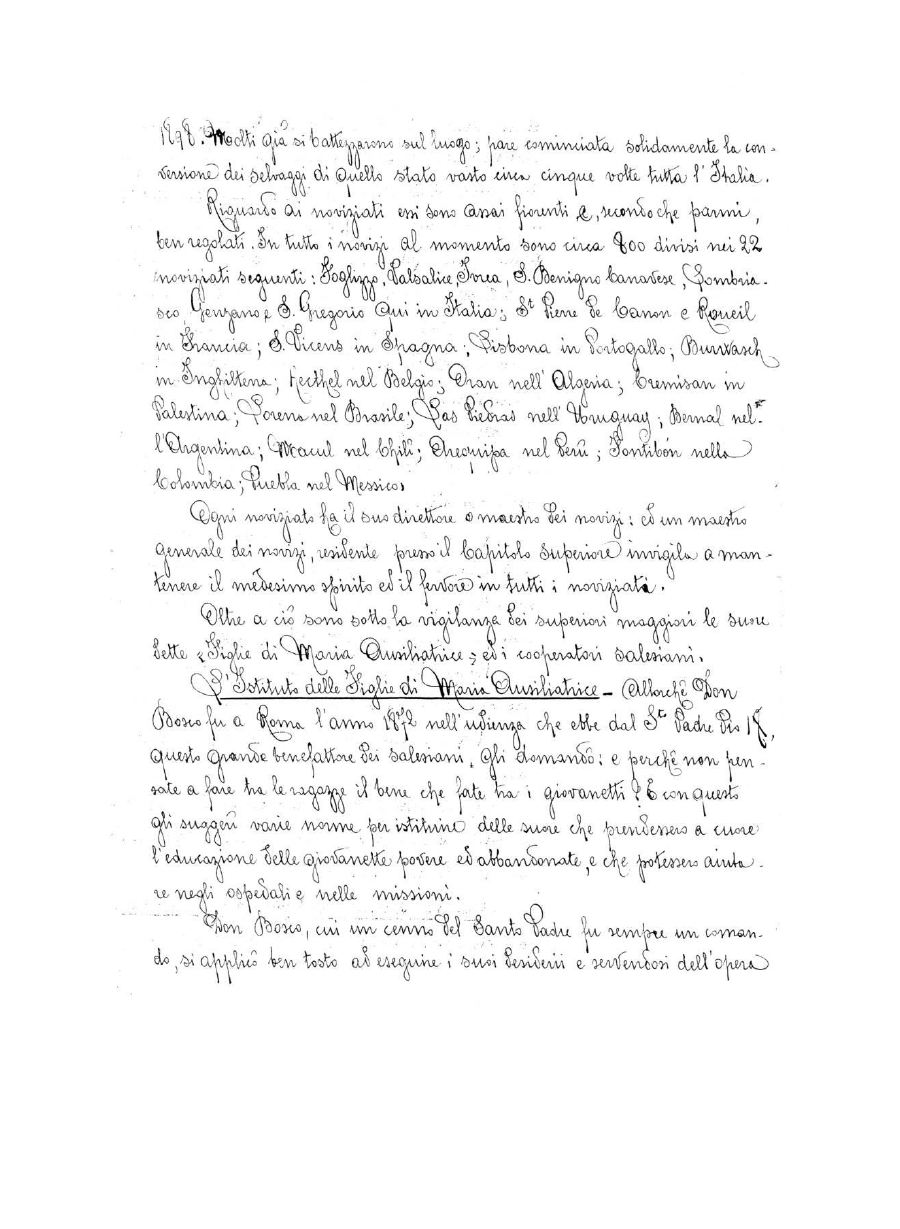 1898. Molti già si battezzarono sul luogo; pare cominciata solidamente la con-
versione dei selvaggi di quello stato vasto circa cinque volte tutta l'Italia.
Riguardo ai noviziati essi sono assai fiorenti e, secondo che parmi,
ben regolati. In tutto i novizi al momento sono circa 800 divisi nei 22
noviziati seguenti: Foglizzo, Valsalice, Ivrea, S. Benigno Canavese, Lombria-
sco, Genzano e S. Gregorio qui in Italia; St Pierre de Canon e Rueil
in Francia; S. Vicens in Spagna; Lisbona in Portogallo; Burwasch
in Inghilterra; Hecthel nel Belgio; Oran nell'Algeria; Cremisan in
Palestina; Lorena nel Brasile; Las Piedras nell'Uruguay; Bernal nel-
l'Argentina; Macul nel Chilì; Arequipa nel Perù; Fontibón nella
Colombia; Puebla nel Messico.
Ogni noviziato ha il suo direttore o maestro dei novizi: ed un maestro
generale dei novizi, residente presso il Capitolo Superiore invigila a man-
tenere il medesimo spirito ed il fervore in tutti i noviziati.
Oltre a ciò sono sotto la vigilanza dei superiori maggiori le suore
dette "Figlie di Maria Ausiliatrice" ed i cooperatori salesiani.
L'Istituto delle Figlie di Maria Ausiliatrice - Allorchè Don
Bosco fu a Roma l'anno 1872 nell'udienza che ebbe dal St Padre Pio IX,
questo grande benefattore dei salesiani, gli domandò: e perchè non pen-
sate a fare tra le ragazze il bene che fate tra i giovanetti? E con questo
gli suggerì varie norme per istituire delle suore che prendessero a cuore
l'educazione delle giovanette povere ed abbandonate, e che potessero aiuta-
re negli ospedali e nelle missioni.
Don Bosco, cui un cenno del Santo Padre fu sempre un coman-
do, si applicò ben tosto ad eseguire i suoi desiderii e servendosi dell'opera